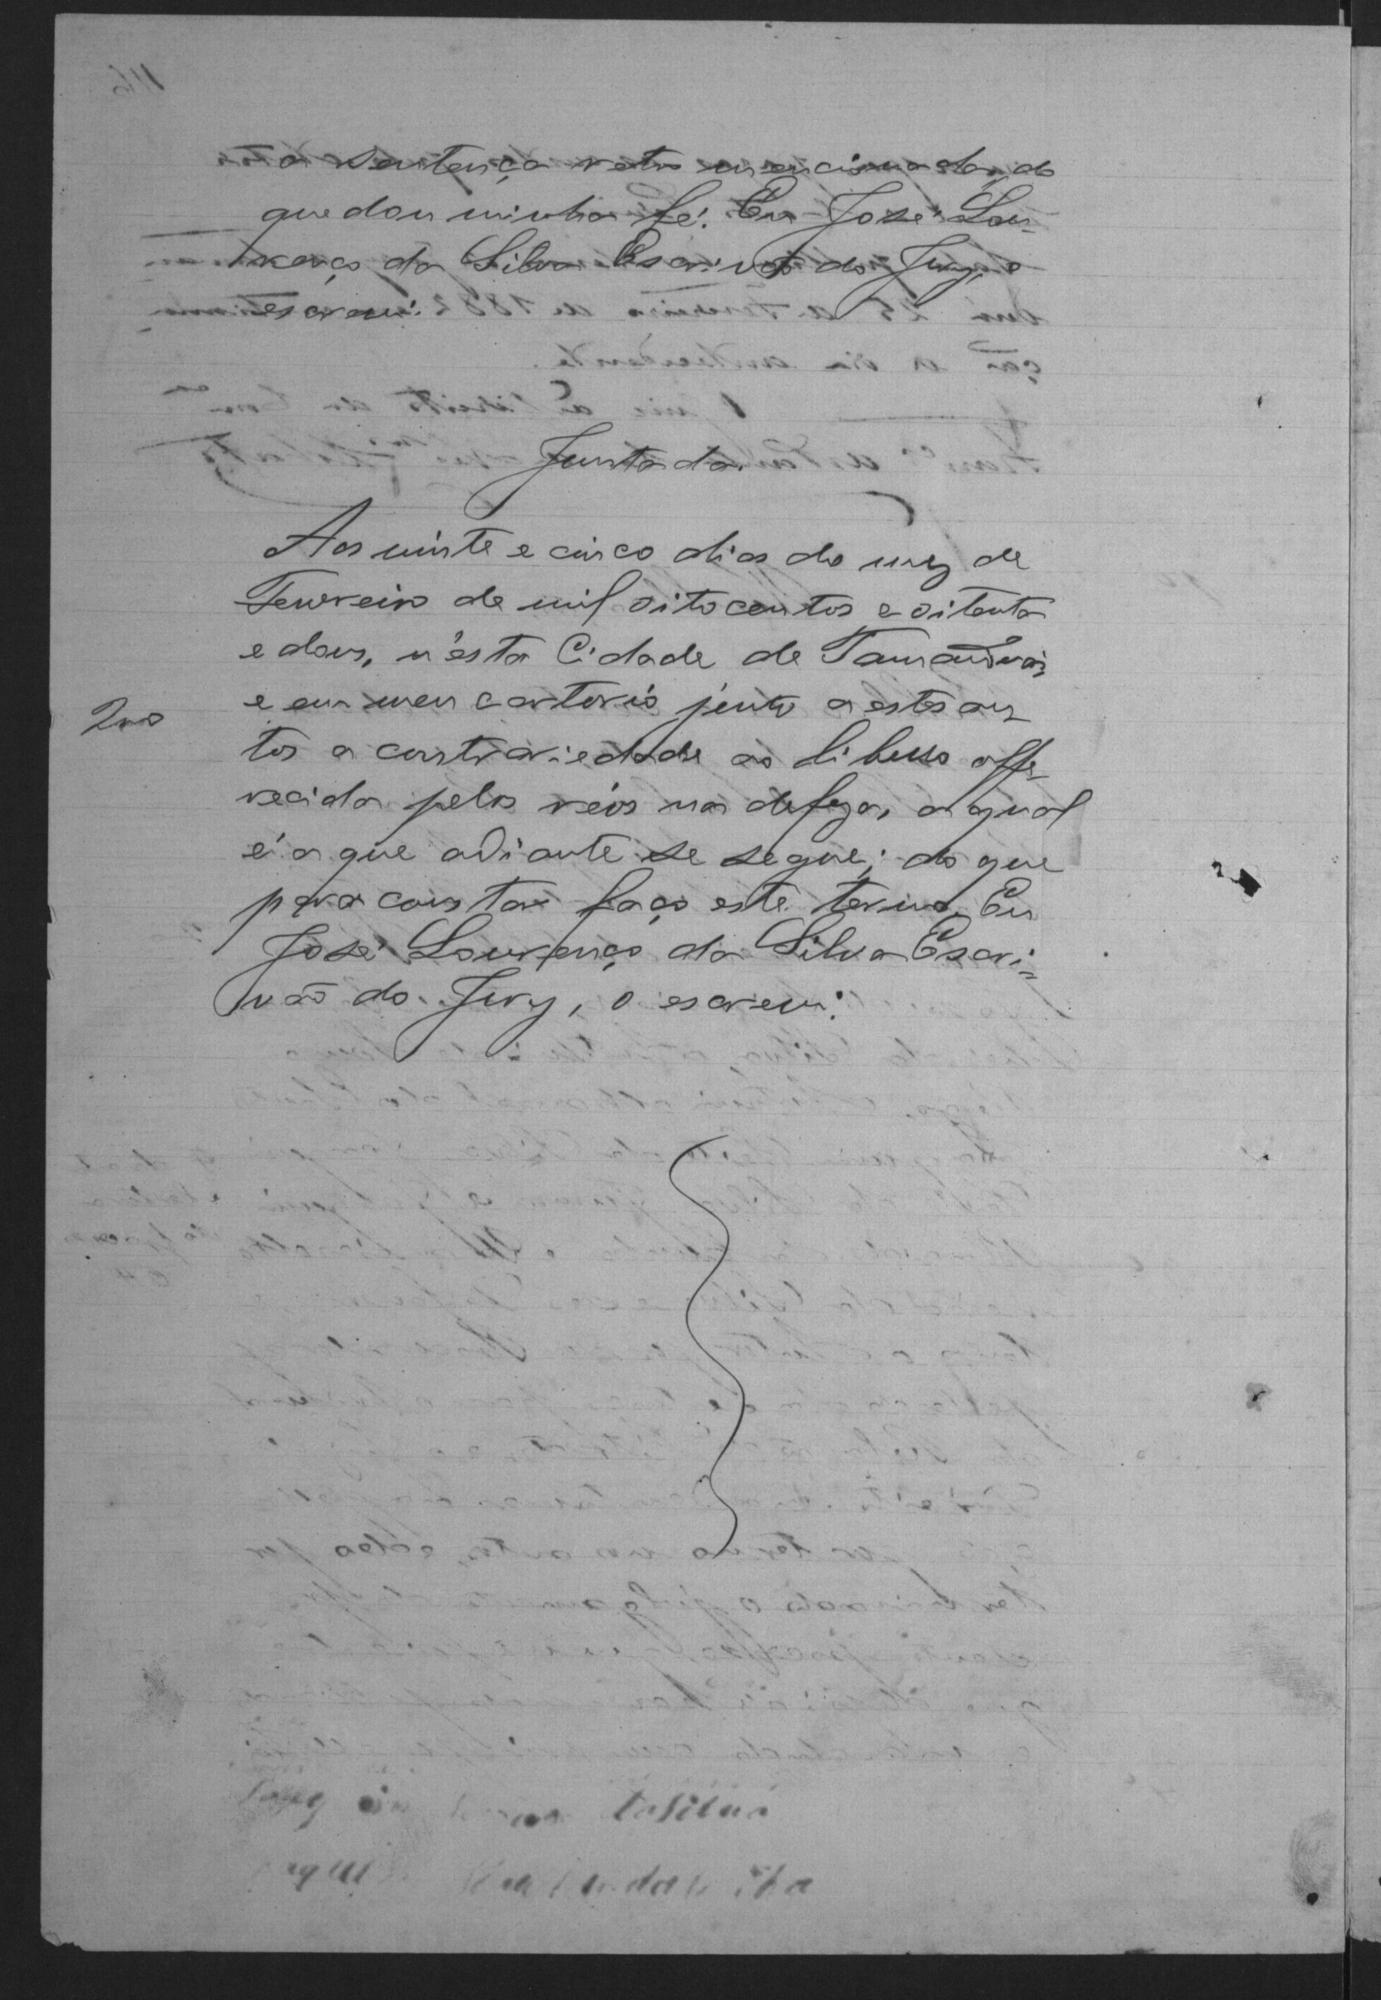 ta sentença retro mencionada, do
que dou minha fé. Eu José Lou-
renço da Silva Escrivão do Jury, o
escrevi.
Juntada.
Aos vinte e cinco dias do mez de
Fevereiro de mil oitocentos e oitenta
e dous, n'esta Cidade de Tamanduá,
e em meu cartorio junto a estes au-
200
tos a contrariedade ao libello offe-
recida pelos réos na defeza, a qual
é a que adiante se segue; do que
para constar faço este termo. Eu
José Lourenço da Silva Escri-
vão do Jury, o escrevi.